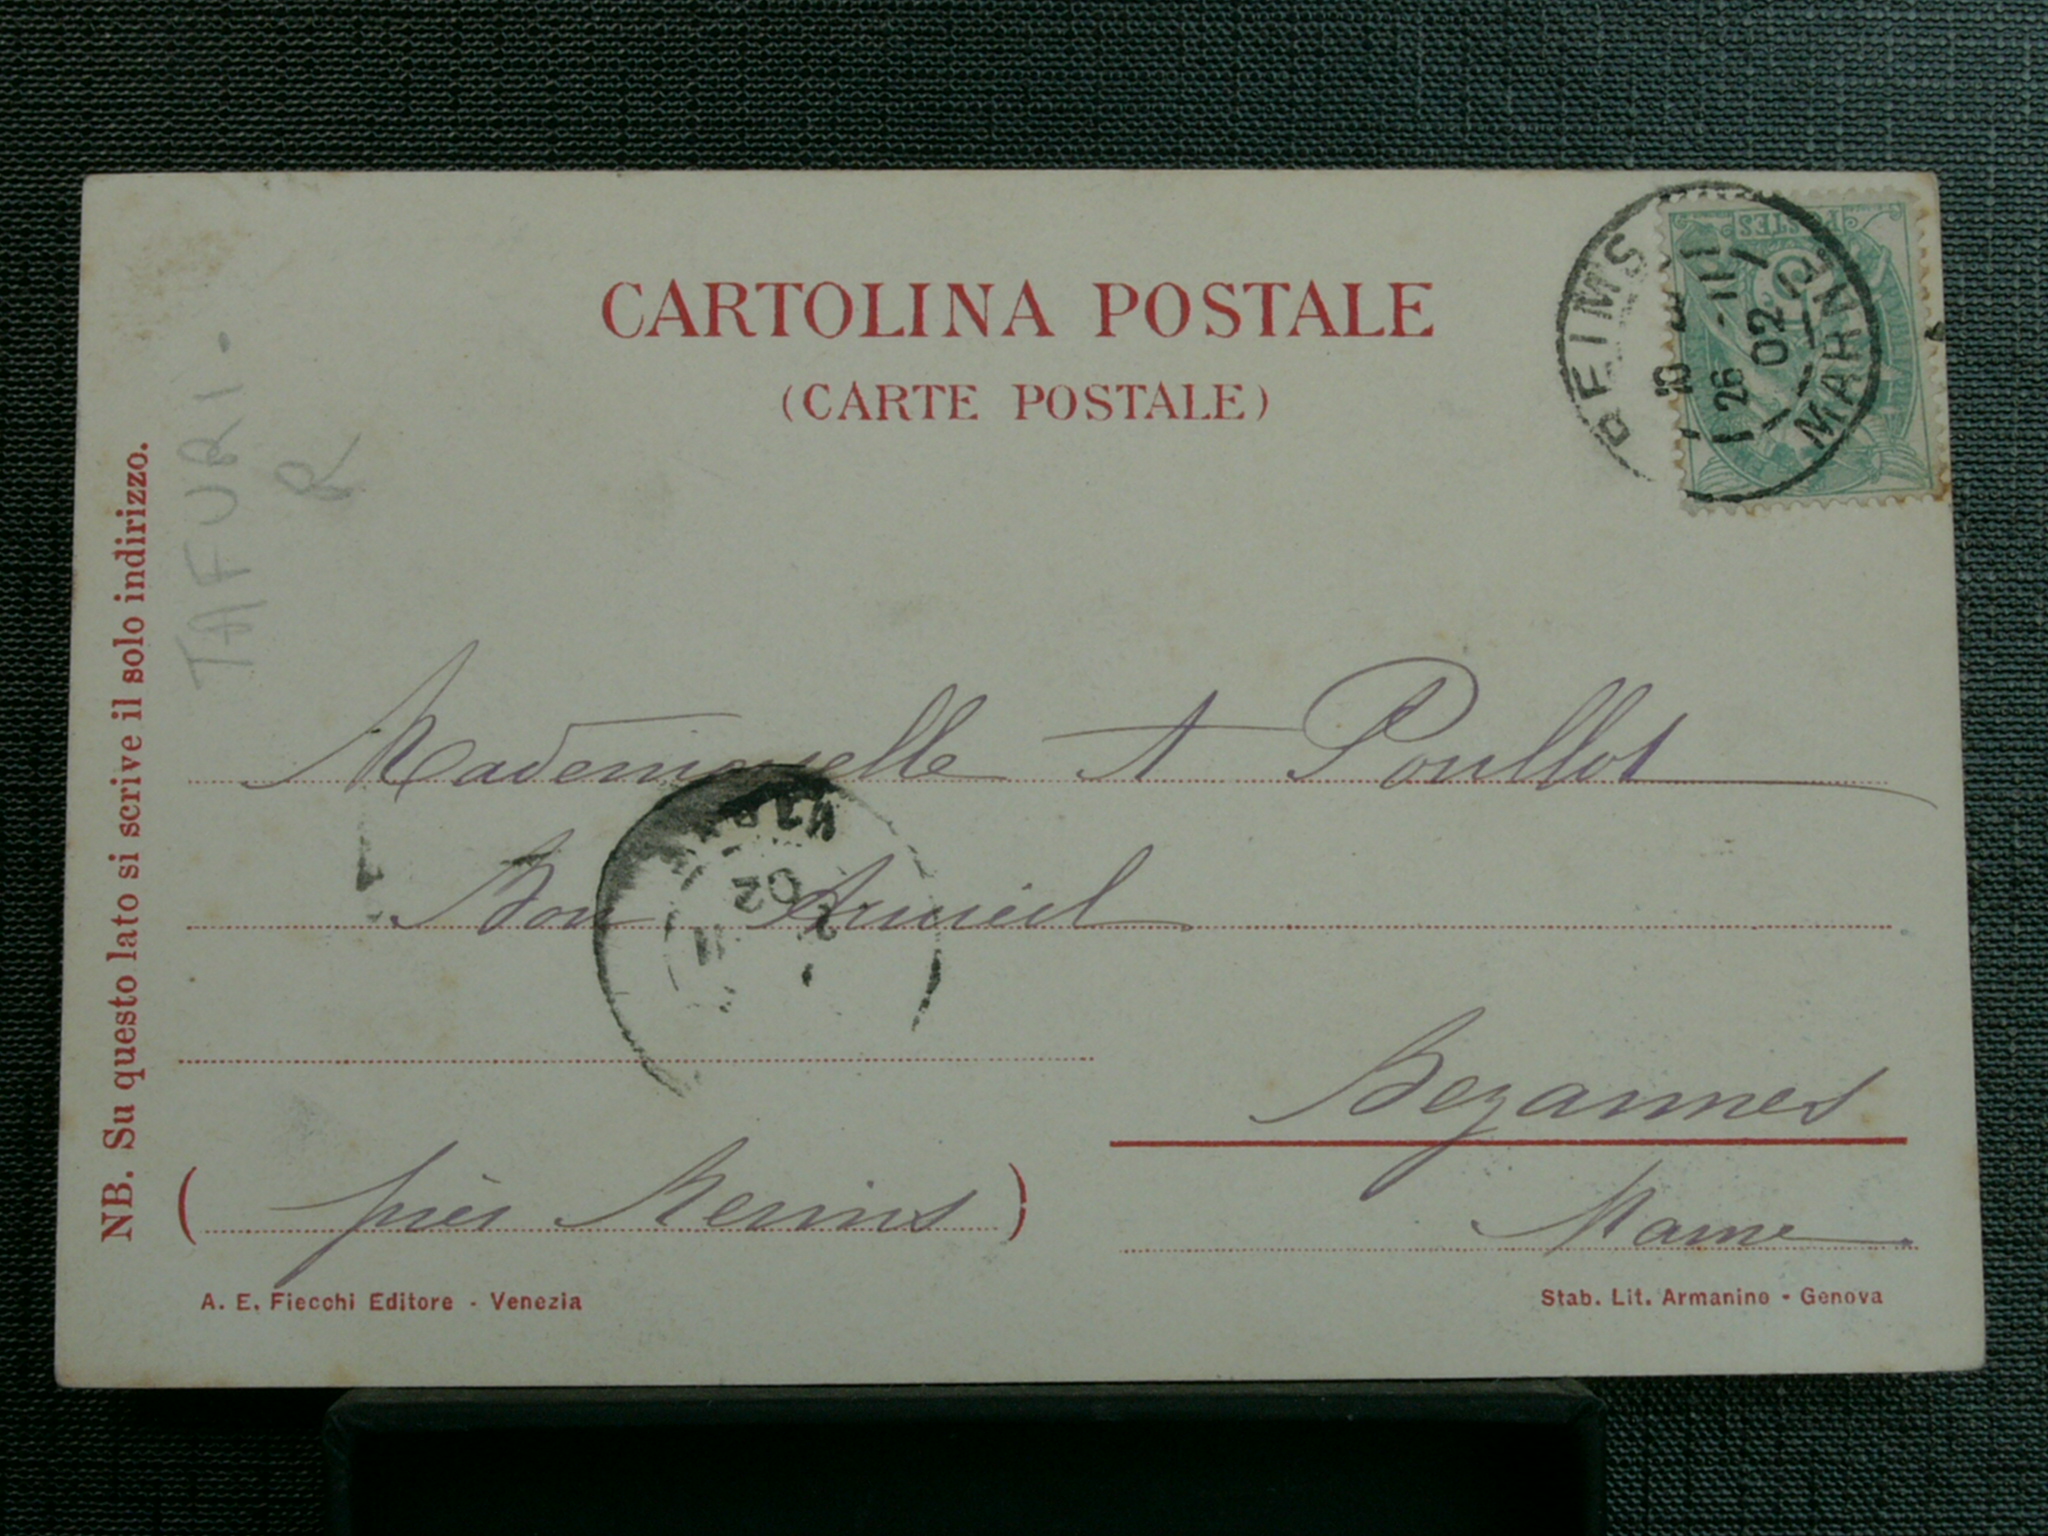 CARTOLINA POSTALE
(CARTE POSTALE)
REIMS
26 -11
02
MARNE
POSTES
NB. Su questo lato si scrive il solo indirizzo.
TAFURI.
R
Mademoiselle A Poullot
Bon Accueil
02
Bezannes
(près Reims)
Marne
A. E. Fiecchi Editore - Venezia
Stab. Lit. Armanino - Genova